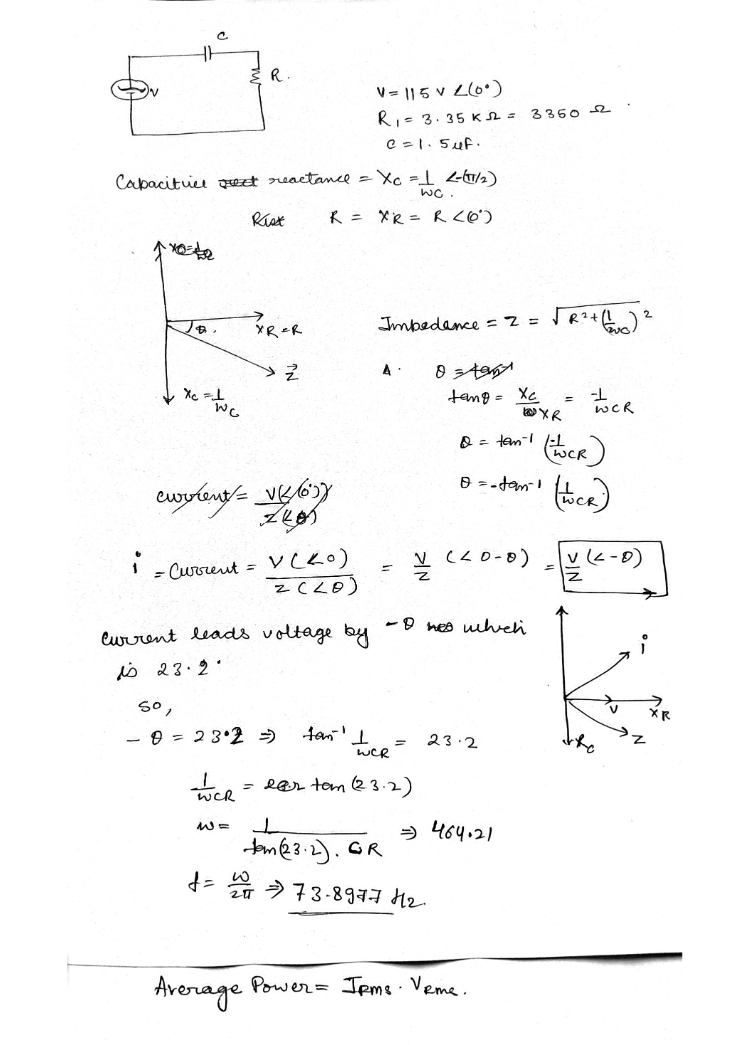 C
R.
V
V = 115 V ∠(0°)
R₁ = 3.35 KΩ = 3350 Ω
C = 1.5 uf.
Capacitive reactance = Xc = 1/wc ∠-(π/2)
R = XR = R ∠(0°)
θ.
XR = R
Z⃗
Xc = 1/wc
Imbedance = Z = √(R² + (1/wc)²)
tanθ = Xc/XR = -1/wCR
θ = tan⁻¹ (-1/wCR)
θ = -tan⁻¹ (1/wCR)
current = V(∠(0°))/Z(∠θ)
i = Current = V(∠0)/Z(∠θ) = V/Z (∠0-θ) = V/Z (∠-θ)
Current leads voltage by -θ which
is 23.2°
i
V
XR
Xc
Z
so,
- θ = 23.2 ⇒ tan⁻¹ 1/wCR = 23.2
1/wCR = tan(23.2)
w = 1/tan(23.2). CR ⇒ 464.21
f = w/2π ⇒ 73.8977 Hz.
Average Power = Irms . Vrms.